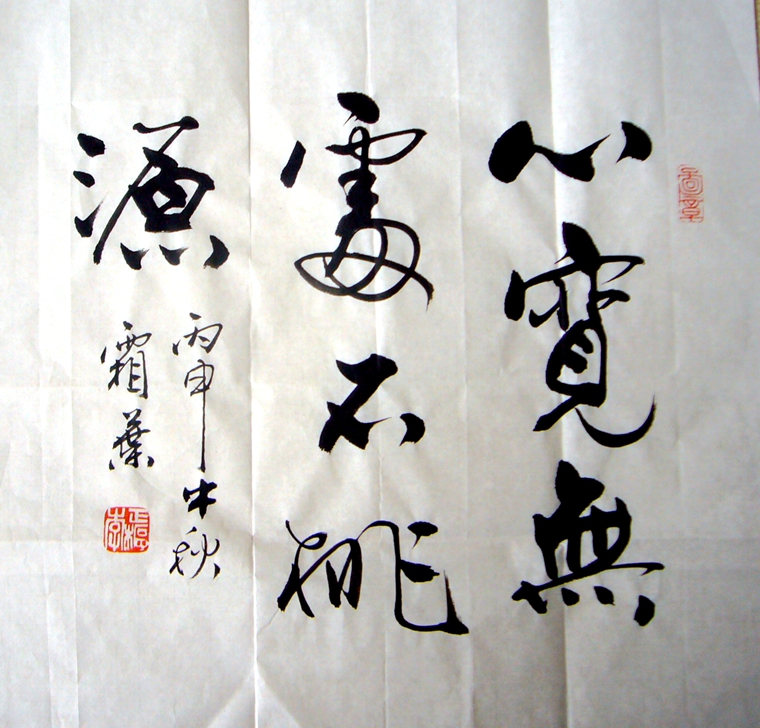 心寬無
處不桃
源
丙申中秋
霜葉